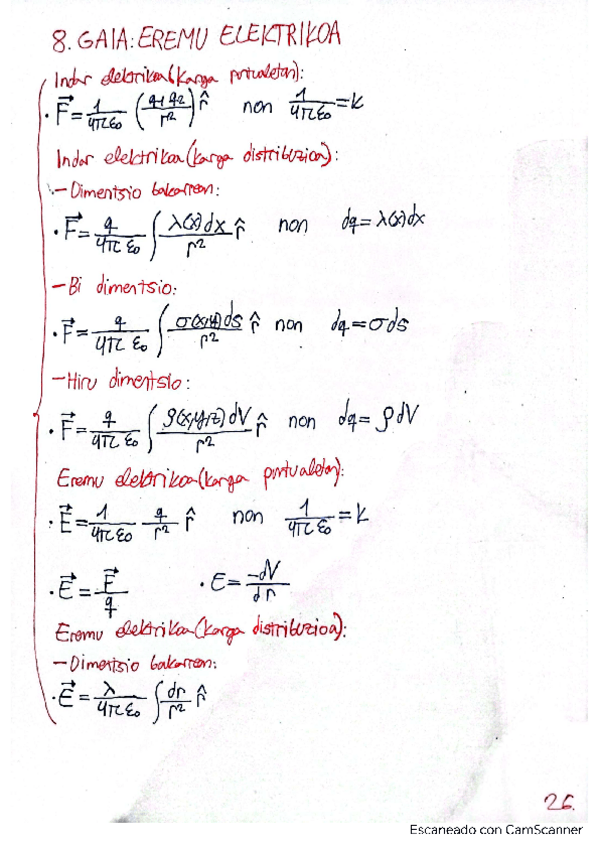 8. GAIA: EREMU ELEKTRIKOA
Indar elektrikoa (karga puntualetan):
· F⃗ = 1/(4πε₀) (q₁q₂/r²) r̂ non 1/(4πε₀) = k
Indar elektrikoa (karga distribuzioa):
- Dimentsio bakarrean:
· F⃗ = q/(4πε₀) ∫ λ(x)dx/r² r̂ non dq = λ(x)dx
- Bi dimentsio:
· F⃗ = q/(4πε₀) ∫ σ(x,y)ds/r² r̂ non dq = σds
- Hiru dimentsio:
· F⃗ = q/(4πε₀) ∫ ρ(x,y,z)dV/r² r̂ non dq = ρdV
Eremu elektrikoa (karga puntualetan):
· E⃗ = 1/(4πε₀) q/r² r̂ non 1/(4πε₀) = k
· E⃗ = F⃗/q · E = -dV/dr
Eremu elektrikoa (karga distribuzioa):
- Dimentsio bakarrean:
· E⃗ = λ/(4πε₀) ∫ dr/r² r̂
26.
Escaneado con CamScanner